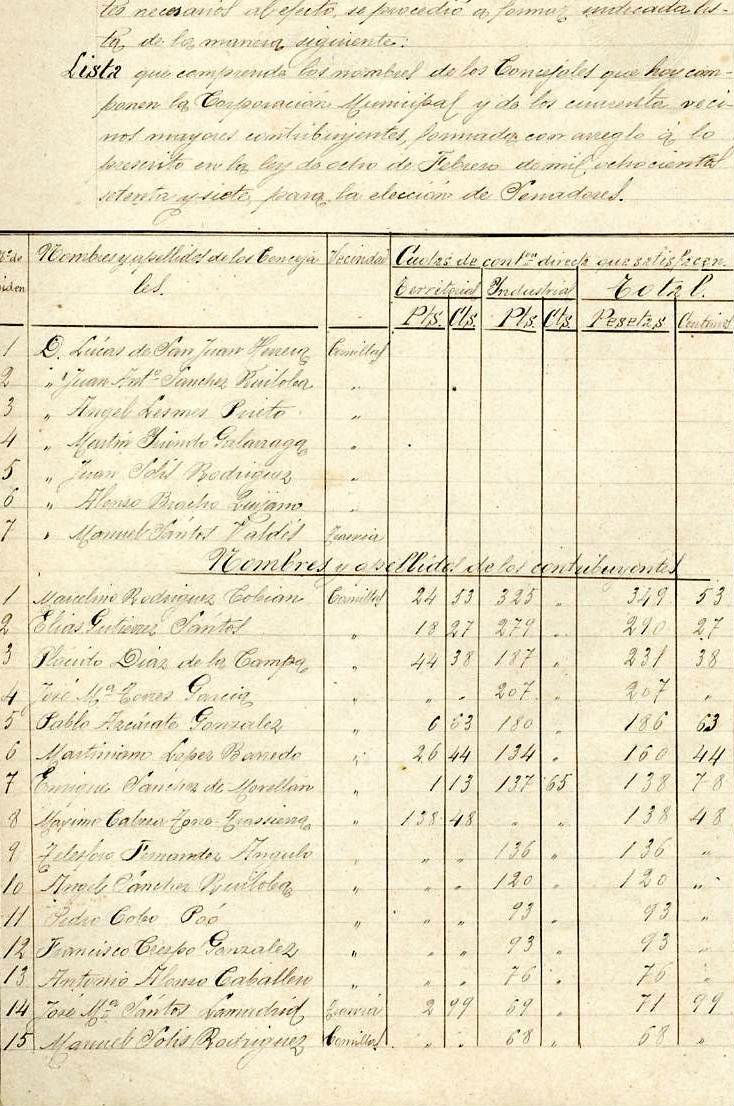 tes necesarios al efecto, se procedió a formar indicada lis-
ta de la manera siguiente:
Lista que comprende los nombres de los Concejales que hoy com-
ponen la Corporación Municipal y de los cuarenta veci-
nos mayores contribuyentes, formada con arreglo á lo
prescrito en la ley de ocho de Febrero de mil ochocientos
setenta y siete, para la elección de Senadores.
Nº de orden Nombres y apellidos de los Conceja Vecindad Cuotas de contón directa que satisfacen.
les. Territorial Industrial Total.
Pts. Cts. Pts. Cts Pesetas Centims
1 D. Lucas de San Juan Herrera Comillas
2 " Juan Antº Sanchez Ruiloba "
3 " Angel Lesmes Prieto "
4 " Martin "
5 " Juan Solis Rodriguez "
6 " Alonso Bracho Quijano "
7 " Manuel Santos Valdés
Nombres y apellidos de los contribuyentes
1 Marcelino Rodriguez Cobian Comillas 24 53 325 " 349 53
2 Elias Gutierrez Santos " 18 27 279 " 290 27
3 Placido Diaz de la Campa " 44 38 187 " 231 38
4 José Mª Torres Garcia " " " 207 " 207 "
5 Pablo Azcárate Gonzalez " 6 63 180 " 186 63
6 Martiniano Lopez Barredo " 26 44 134 " 160 44
7 Enrique Sanchez de Movellan " 1 13 137 65 138 78
8 Maximo Cabeza " 138 48 " " 138 48
9 Telesforo Fernandez Angulo " " " 136 " 136 "
10 Angel Sánchez Ruiloba " " " 120 " 120 "
11 Pedro Cobo Poó " " " 93 " 93 "
12 Francisco Crespo Gonzalez " " " 93 " 93 "
13 Antonio Alonso Caballero " " " 76 " 76 "
14 José Mª Santos Lamadrid 2 99 69 " 71 99
15 Manuel Solis Rodriguez Comillas " " 68 " 68 "